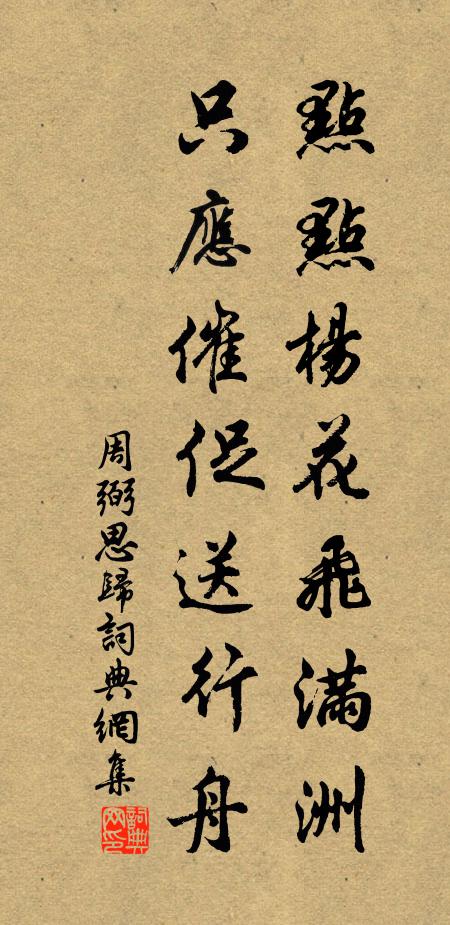 點點楊花飛滿洲
只應催促送行舟
周弼思歸詞典網集
詞典網印